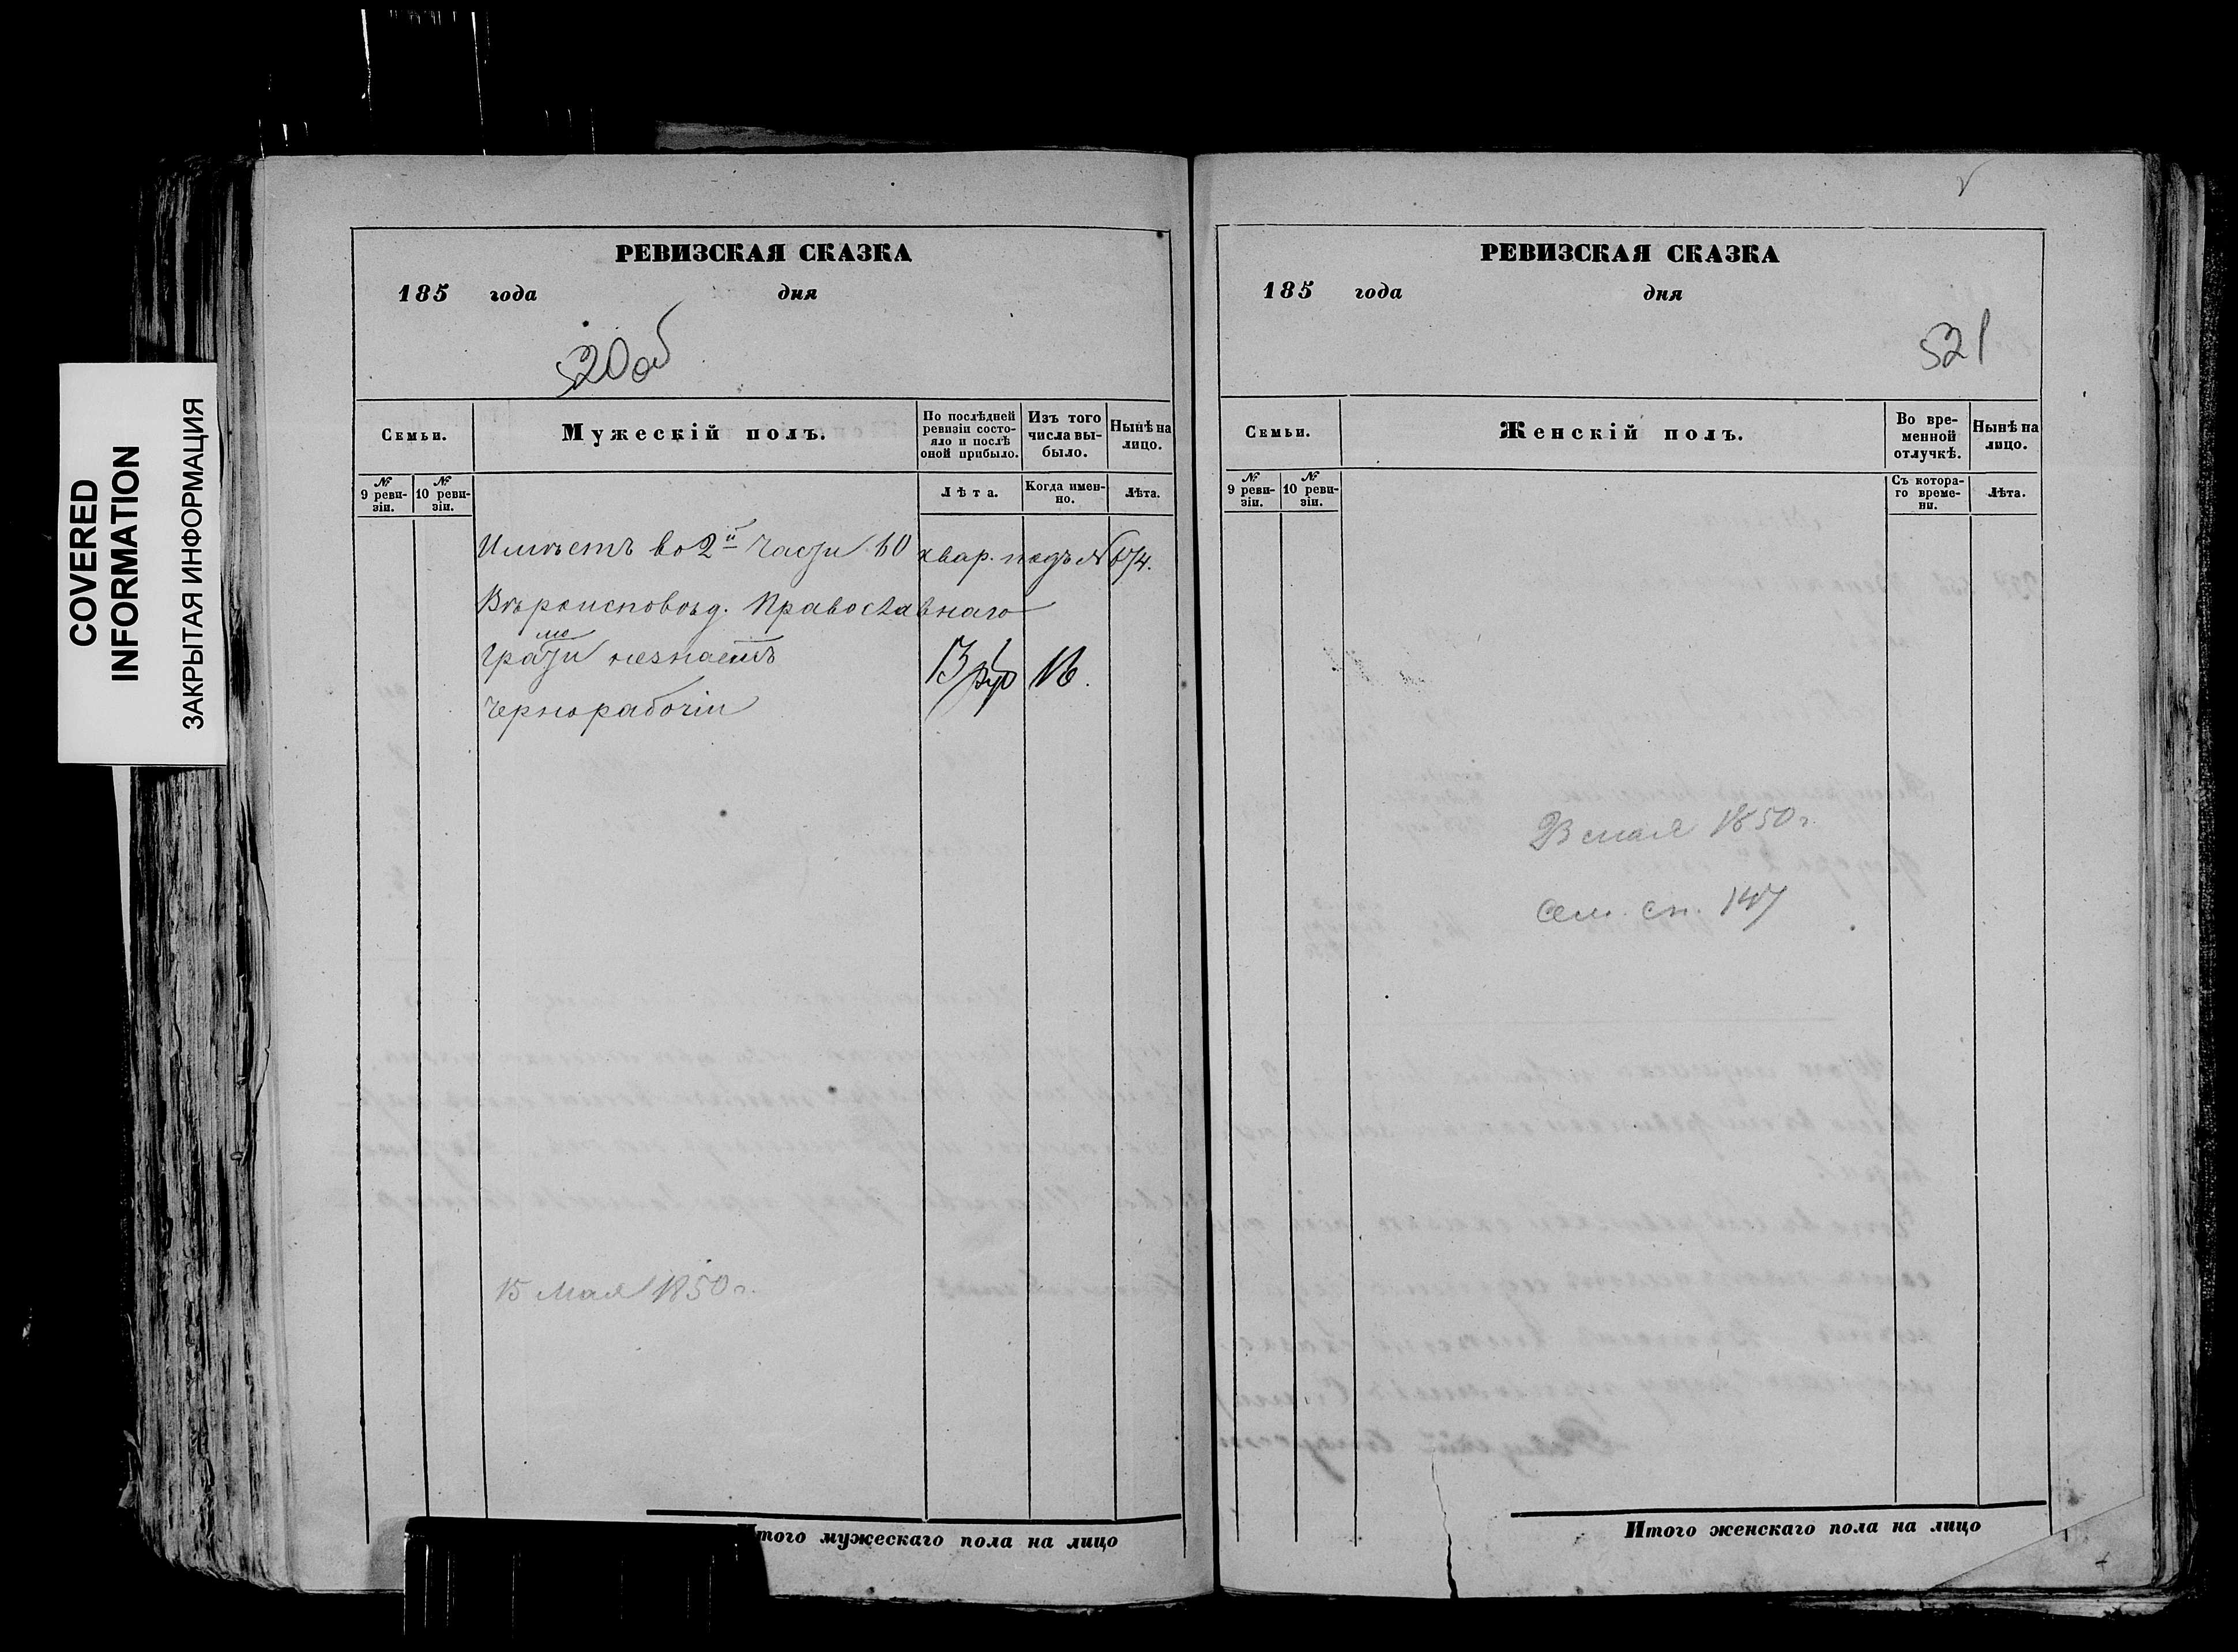 COVERED
INFORMATION
ЗАКРЫТАЯ ИНФОРМАЦИЯ
РЕВИЗСКАЯ СКАЗКА
185 года дня
520об
Семьи.
Мужескій полъ.
По послѣдней ревизіи состояло и послѣ оной прибыло.
Изъ того числа выбыло.
Нынѣ на лицо.
№ 9 ревизіи.
№ 10 ревизіи.
Лѣта.
Когда именно.
Лѣта.
Имѣетъ во 2й части 60 квар. подъ № 674.
Вѣроисповѣд. Православнаго
Грамоти незнаетъ
13 руб 16.
Чернорабочіи
15 Мая 1850 г.
Итого мужескаго пола на лицо
РЕВИЗСКАЯ СКАЗКА
185 года дня
521
Семьи.
Женскій полъ.
Во временной отлучкѣ.
Нынѣ на лицо.
№ 9 ревизіи.
№ 10 ревизіи.
Съ котораго времени.
Лѣта.
мая 1850 г.
сп. 147
Итого женскаго пола на лицо